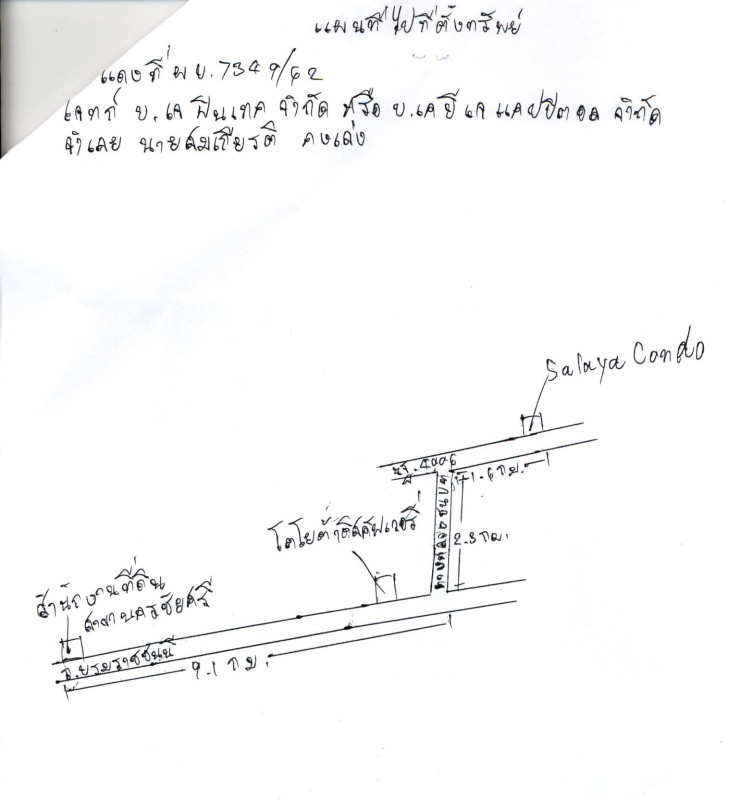 แผนที่ไปที่ตั้งทรัพย์
แดงที่ ผบ.7349/62
โจทก์ บ.เจ ฟินเทค จำกัด หรือ บ.เคบี เจ แคปปิตอล จำกัด
จำเลย นายสมเกียรติ คงเล่ง
Salaya Condo
นฐ.4006
1.6 กม.
2.8 กม.
โตโยต้าดิลิเวอรี่
สำนักงานที่ดิน
สาขานครชัยศรี
ถ.บรมราชชนนี
9.1 กม.